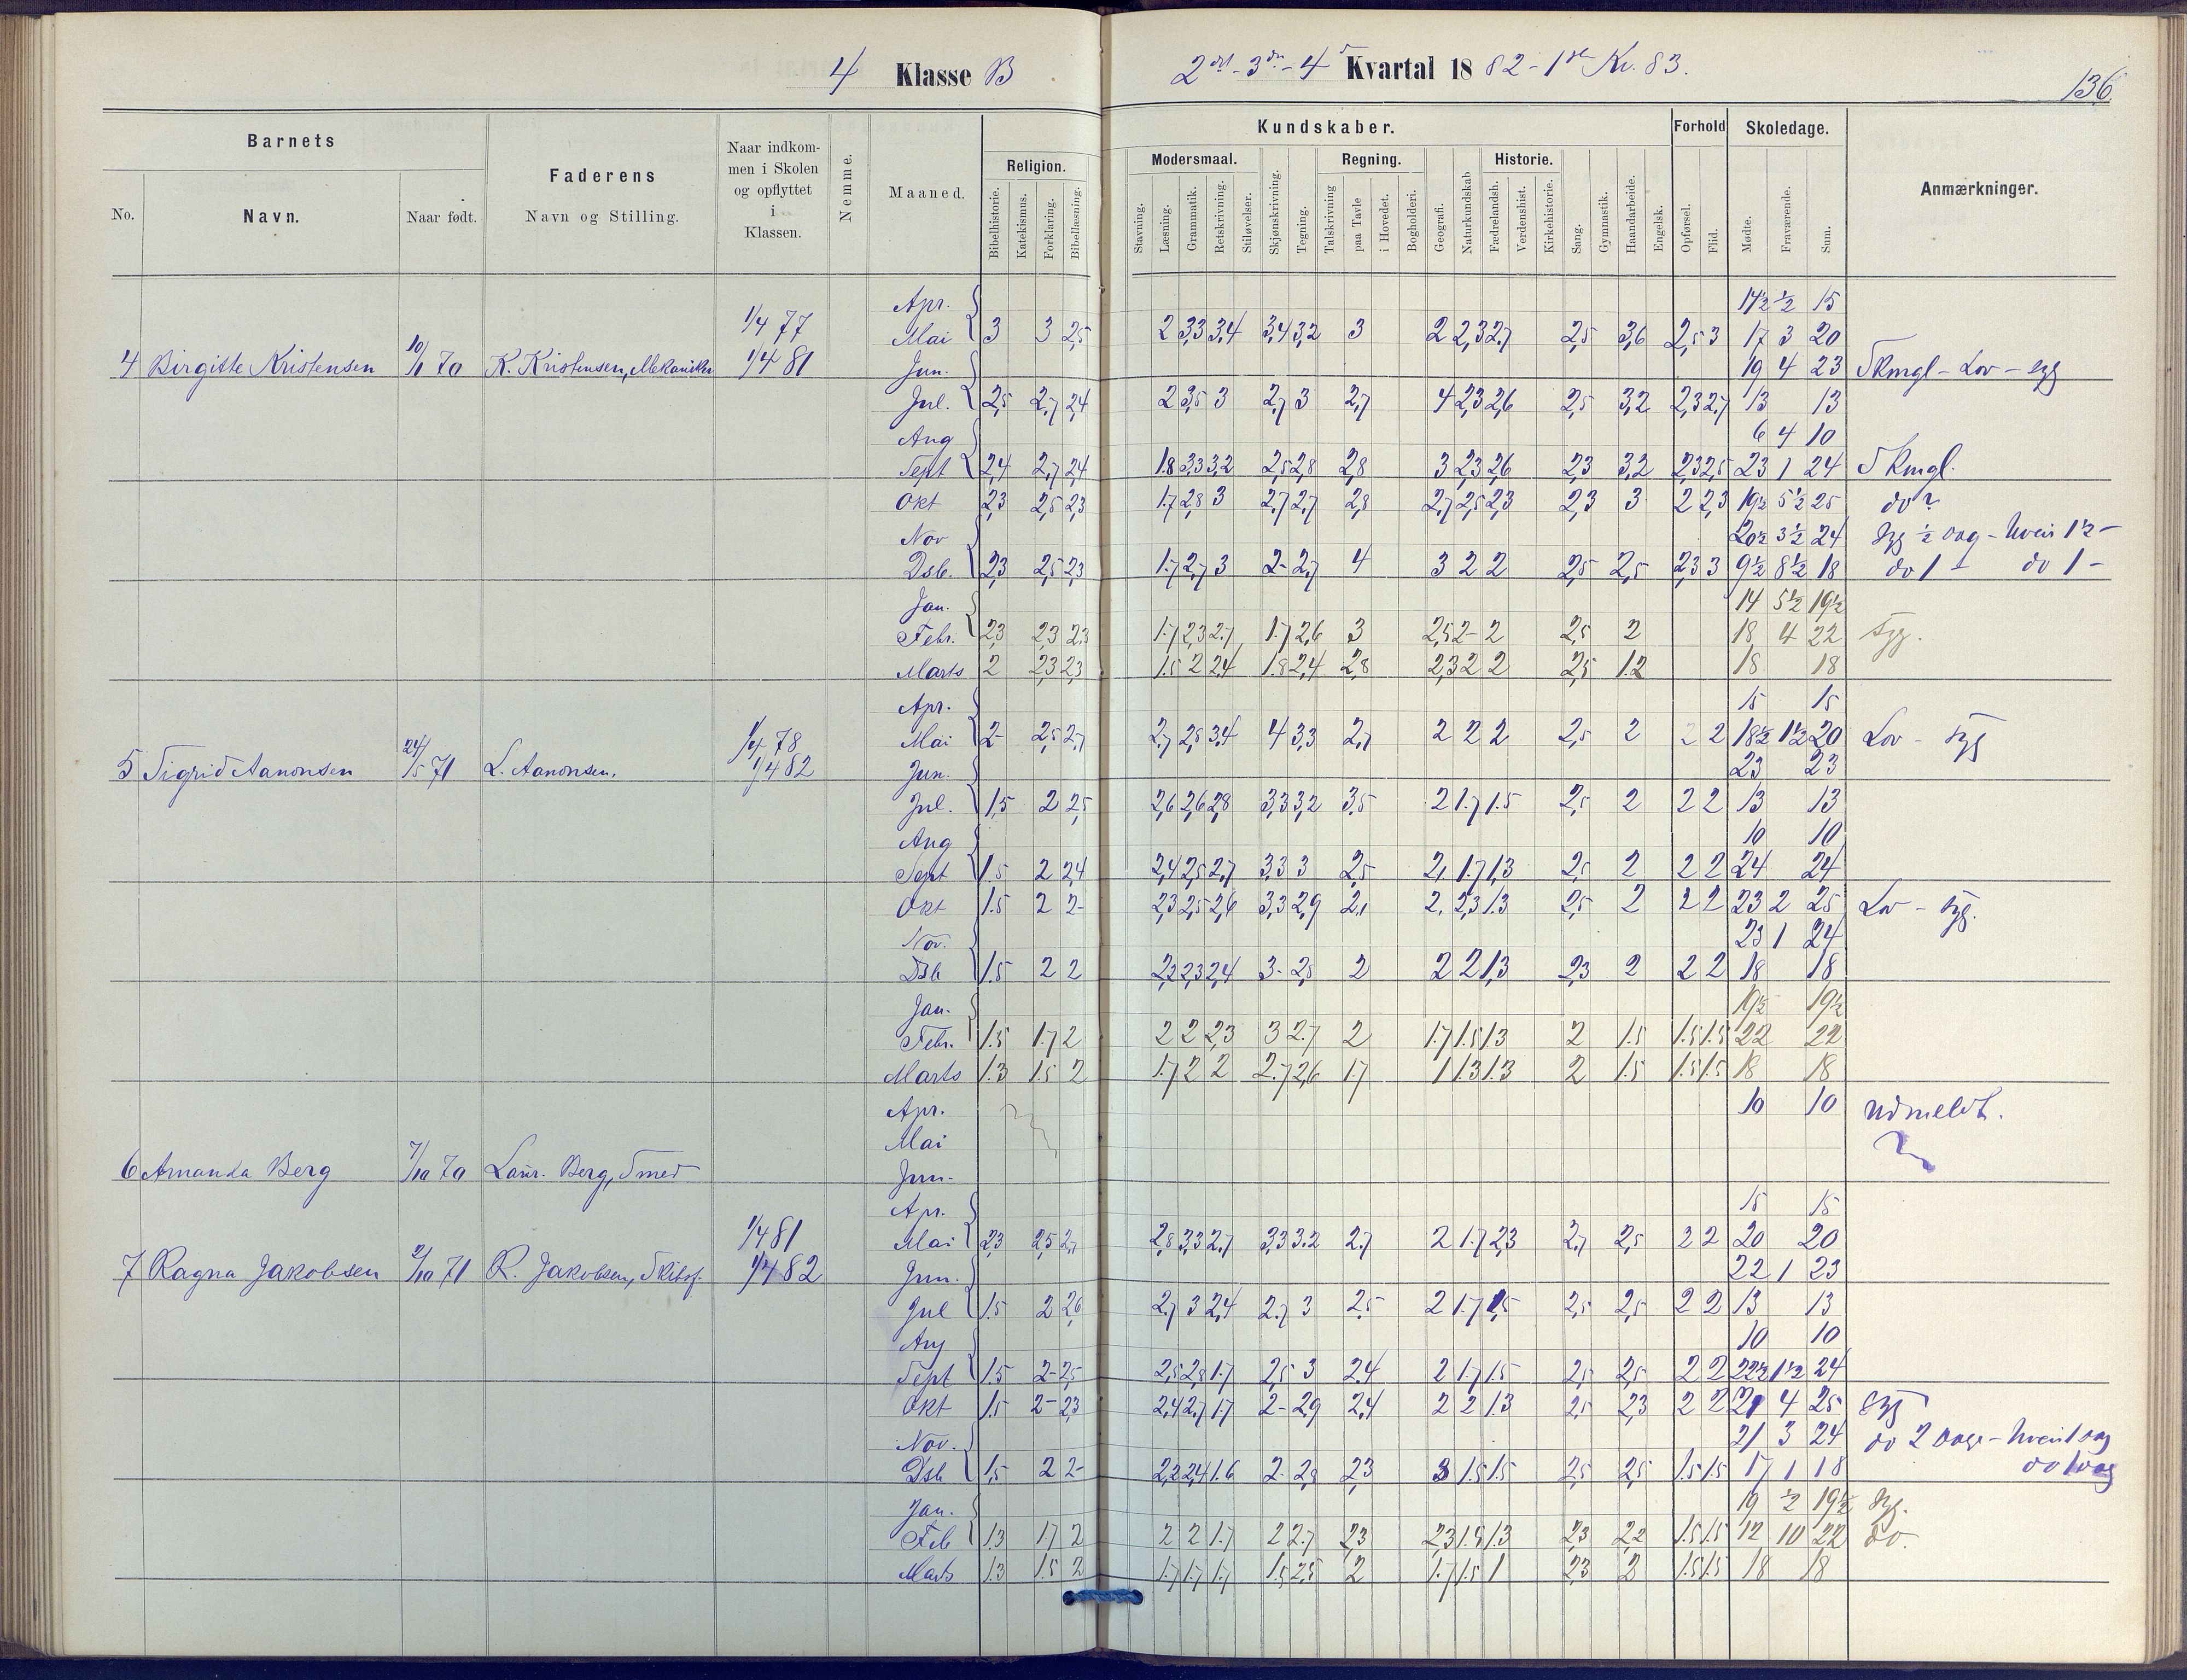 4 Klasse B
2det - 3die - 4 Kvartal 18 82 - 1ste Kv. 83.
136.
Barnets
Faderens
Naar indkom-
men i Skolen
og opflyttet
i
Klassen.
Nemme.
Maaned.
Religion.
Kundskaber.
Modersmaal.
Regning.
Historie.
Forhold
Skoledage.
Anmærkninger.
No.
Navn.
Naar født.
Navn og Stilling.
Bibelhistorie.
Katekismus.
Forklaring.
Bibellæsning.
Stavning.
Læsning.
Grammatik.
Retskrivning.
Stiløvelser.
Skjønskrivning.
Tegning.
Talskrivning
paa Tavle
i Hovedet.
Bogholderi.
Geografi.
Naturkundskab
Fædrelandsh.
Verdenshist.
Kirkehistorie.
Sang.
Gymnastik.
Haandarbeide.
Engelsk.
Opførsel.
Flid.
Mødte.
Fraværende.
Sum.
Apr. 14½ ½ 15
1/4 77 Mai 3 3 2,5 2 3,3 3,4 3,4 3,2 3 2 2,3 2,7 2,5 3,6 2,5 3 17 3 20
4 Birgitte Kristensen 10/1 70 K. Kristensen, Mekaniker 1/4 81 Jun. 19 4 23 Skmgl - Lov - syg
Jul. 2,5 2,7 2,4 2 3,5 3 2,7 3 2,7 4 2,3 2,6 2,5 3,2 2,3 2,7 13 13
Aug 6 4 10
Sept 2,4 2,7 2,4 1.8 3,3 3,2 2,5 2,8 2,8 3 2,3 2,6 2,3 3,2 2,3 2,5 23 1 24 Skmgl.
Okt 2,3 2,5 2,3 1.7 2,8 3 2,7 2,7 2,8 2,7 2,5 2,3 2,3 3 2 2,3 19½ 5½ 25 do
Nov 20½ 3½ 24 syg ½ dag - hvil 1½ -
Dsb. 2,3 2,5 2,3 1.7 2,7 3 2- 2,7 4 3 2 2 2,5 2,5 2,3 3 9½ 8½ 18 do 1 - do 1 -
Jan. 14 5½ 19½
Febr. 2,3 2,3 2,3 1.7 2,3 2.7 1.7 2,6 3 2,5 2- 2 2,5 2 18 4 22 syg.
Marts 2 2,3 2,3 1.5 2 2,4 1.8 2,4 2,8 2,3 2 2 2,5 1.2 18 18
Apr. 15 15
1/4 78 Mai 2- 2,5 2,7 2,7 2,5 3,4 4 3,3 2,7 2 2 2 2,5 2 2 2 18½ 1½ 20 Lov - syg
5 Sigrid Aanonsen 24/5 71 L. Aanonsen. 1/4 82 Jun. 23 23
Jul. 1,5 2 2,5 2,6 2,6 2,8 3,3 3,2 3,5 2 1.7 1.5 2,5 2 2 2 13 13
Aug 10 10
Sept 1.5 2 2,4 2,4 2,5 2,7 3,3 3 2,5 2, 1.7 1,3 2,5 2 2 2 24 24
Okt 1.5 2 2- 2,3 2,5 2,6 3,3 2,9 2,1 2, 2,3 1.3 2,5 2 2 2 23 2 25 Lov - syg.
Nov. 23 1 24
Dsb 1.5 2 2 2,2 2,3 2,4 3- 2,8 2 2 2 1,3 2,3 2 2 2 18 18
Jan. 19½ 19½
Febr. 1.5 1.7 2 2 2 2,3 3 2.7 2 1.7 1.5 1.3 2 1.5 1.5 1.5 22 22
Marts 1.3 1.5 2 1.7 2 2 2.7 2,6 1.7 1 1.3 1.3 2 1.5 1.5 1.5 18 18
Apr. 10 10 udmeldt.
Mai
6 Amanda Berg 7/10 70 Laur. Berg, Smed Jun.
Apr. 15 15
1/4 81 Mai 2,3 2,5 2,7 2,8 3,3 2.7 3,3 3.2 2.7 2 1.7 2,3 2,7 2,5 2 2 20 20
7 Ragna Jakobsen 2/10 71 R. Jakobsen, Skibsf. 1/4 82 Jun. 22 1 23
Jul 1.5 2 2,6 2,7 3 2,4 2.7 3 2.5 2 1.7 1,5 2,5 2,5 2 2 13 13
Aug 10 10
Sept 1.5 2- 2,5 2,5 2,8 1.7 2,5 3 2.4 2 1.7 1.5 2,5 2,5 2 2 22½ 1½ 24
Okt 1.5 2- 2,3 2,4 2,7 1.7 2- 2,9 2,4 2 2 1.3 2,5 2,3 2 2 21 4 25 syg
Nov. 21 3 24 do 2 dage - hvil 1 dag
Dsb 1,5 2 2- 2,2 2,4 1.6 2- 2,8 2,3 3 1.5 1.5 2,5 2,5 1.5 1.5 17 1 18 do 1 dag
Jan. 19 ½ 19½ syg.
Feb 1.3 1.7 2 2 2 1.7 2 2.7 2,3 2,3 1.5 1.3 2,3 2,2 1.5 1.5 12 10 22 do.
Marts 1.3 1.5 2 1.7 1.7 1.7 1.5 2,5 2 1.7 1.5 1 2,3 2 1.5 1.5 18 18